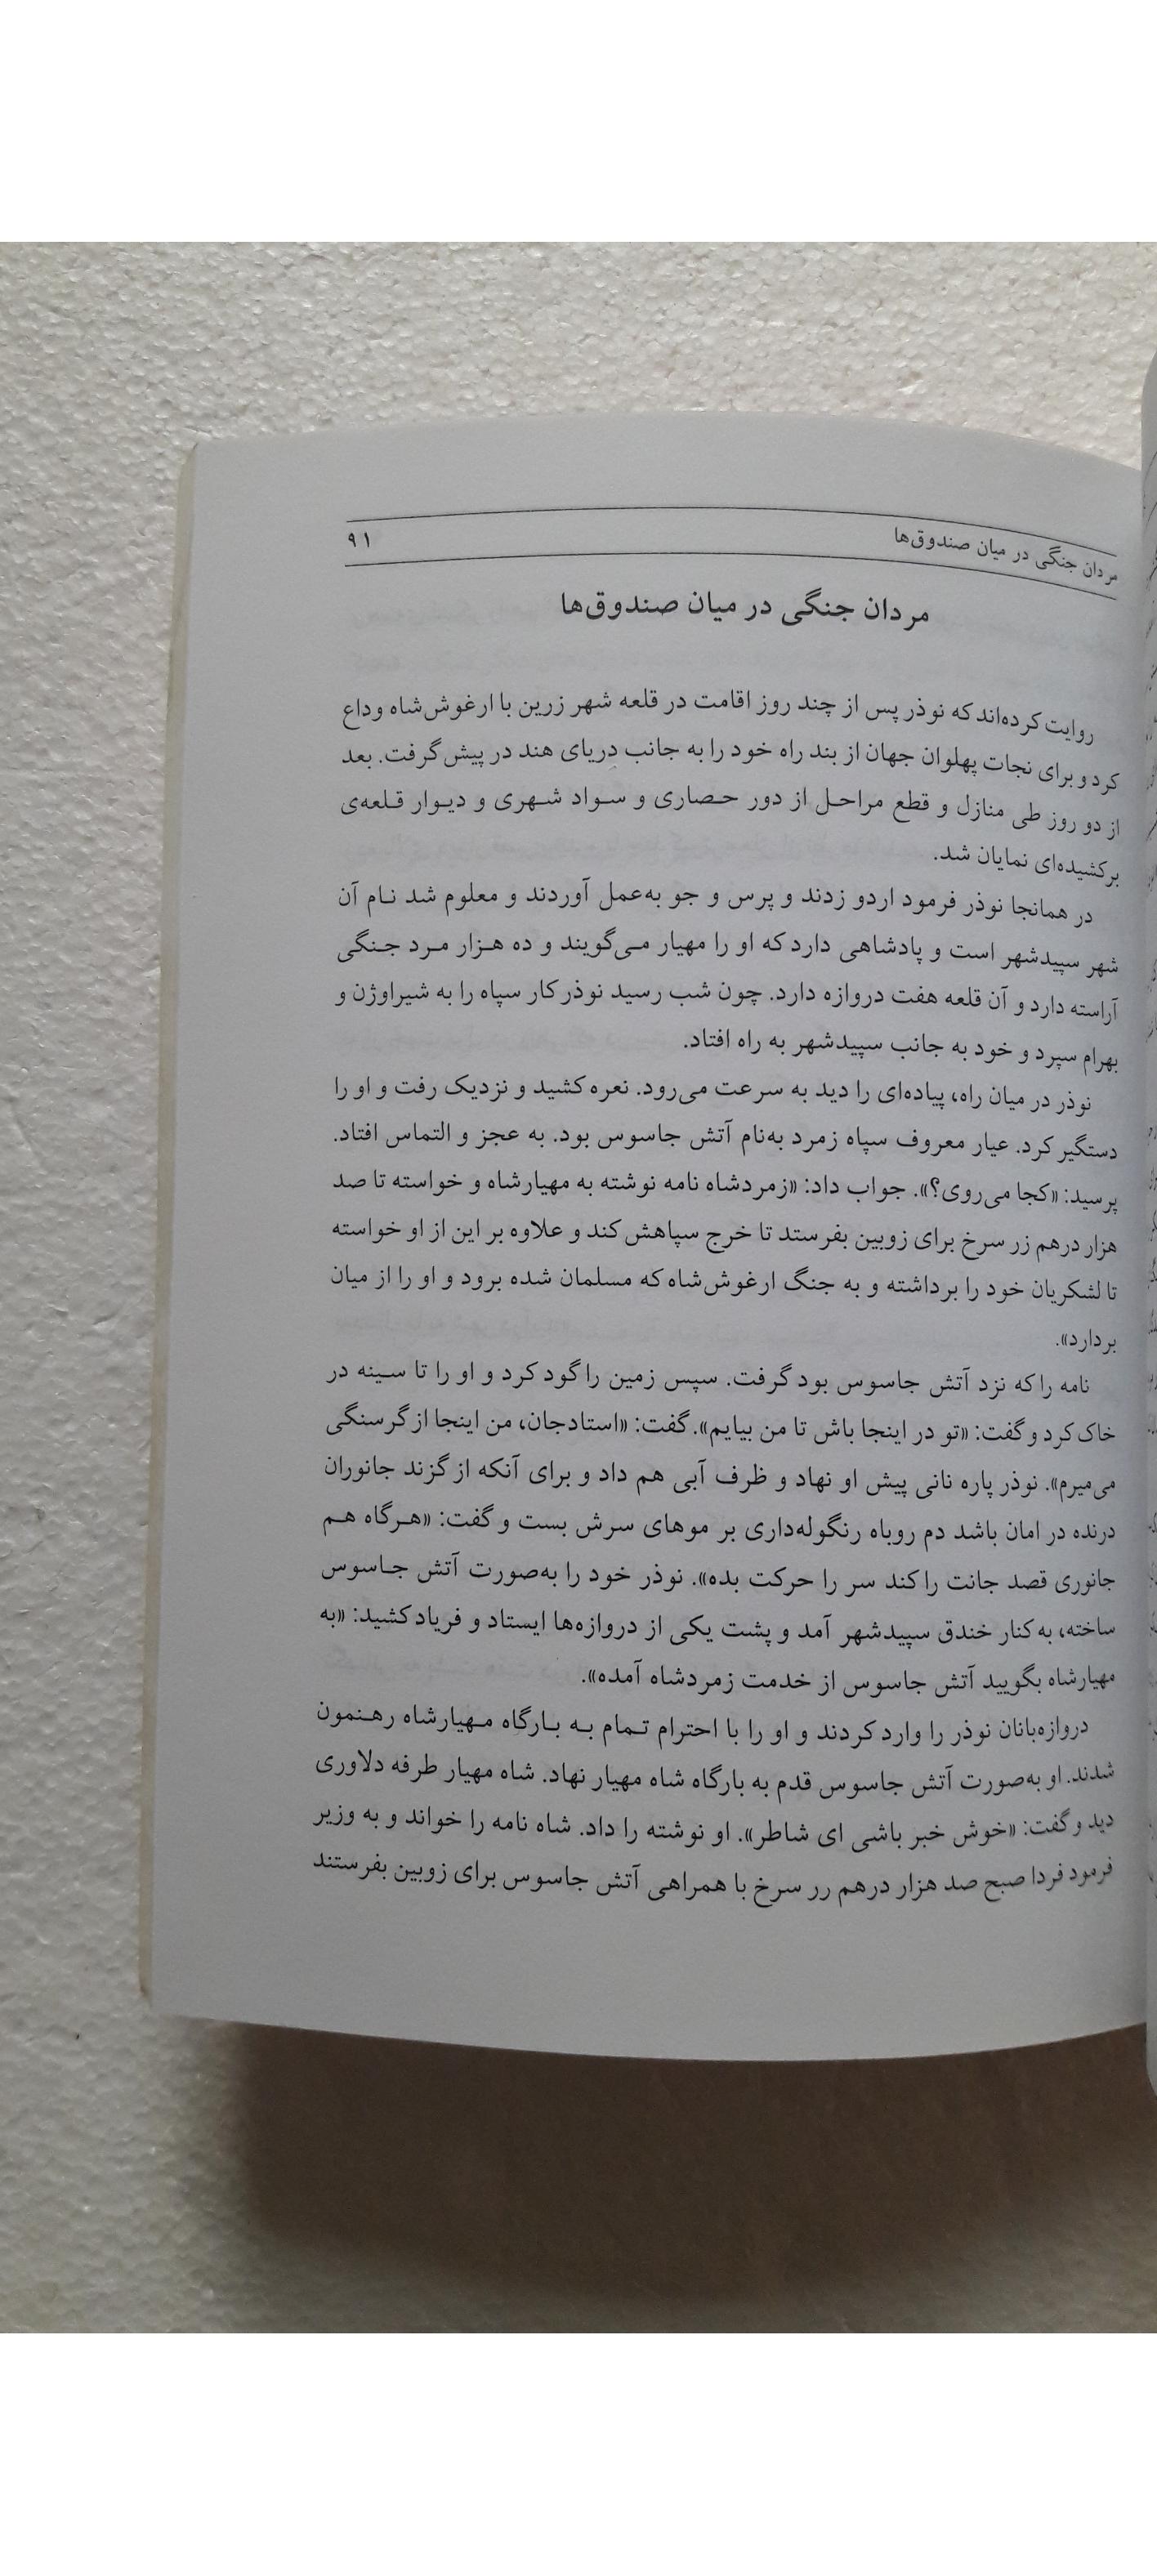 مردان جنگی در میان صندوق‌ها ۹۱
مردان جنگی در میان صندوق‌ها
روایت کرده‌اند که نوذر پس از چند روز اقامت در قلعه شهر زرین با ارغوش‌شاه وداع
کرد و برای نجات پهلوان جهان از بند راه خود را به جانب دریای هند در پیش گرفت. بعد
از دو روز طی منازل و قطع مراحل از دور حصاری و سواد شهری و دیوار قلعه‌ی
برکشیده‌ای نمایان شد.
در همانجا نوذر فرمود اردو زدند و پرس و جو به‌عمل آوردند و معلوم شد نام آن
شهر سپیدشهر است و پادشاهی دارد که او را مهیار می‌گویند و ده هزار مرد جنگی
آراسته دارد و آن قلعه هفت دروازه دارد. چون شب رسید نوذر کار سپاه را به شیراوژن و
بهرام سپرد و خود به جانب سپیدشهر به راه افتاد.
نوذر در میان راه، پیاده‌ای را دید به سرعت می‌رود. نعره کشید و نزدیک رفت و او را
دستگیر کرد. عیار معروف سپاه زمرد به‌نام آتش جاسوس بود. به عجز و التماس افتاد.
پرسید: «کجا می‌روی؟». جواب داد: «زمردشاه نامه نوشته به مهیارشاه و خواسته تا صد
هزار درهم زر سرخ برای زوبین بفرستد تا خرج سپاهش کند و علاوه بر این از او خواسته
تا لشکریان خود را برداشته و به جنگ ارغوش‌شاه که مسلمان شده برود و او را از میان
بردارد».
نامه را که نزد آتش جاسوس بود گرفت. سپس زمین را گود کرد و او را تا سینه در
خاک کرد و گفت: «تو در اینجا باش تا من بیایم». گفت: «استادجان، من اینجا از گرسنگی
می‌میرم». نوذر پاره نانی پیش او نهاد و ظرف آبی هم داد و برای آنکه از گزند جانوران
درنده در امان باشد دم روباه رنگوله‌داری بر موهای سرش بست و گفت: «هرگاه هم
جانوری قصد جانت را کند سر را حرکت بده». نوذر خود را به‌صورت آتش جاسوس
ساخته، به کنار خندق سپیدشهر آمد و پشت یکی از دروازه‌ها ایستاد و فریاد کشید: «به
مهیارشاه بگویید آتش جاسوس از خدمت زمردشاه آمده».
دروازه‌بانان نوذر را وارد کردند و او را با احترام تمام به بارگاه مهیارشاه رهنمون
شدند. او به‌صورت آتش جاسوس قدم به بارگاه شاه مهیار نهاد. شاه مهیار طرفه دلاوری
دید و گفت: «خوش خبر باشی ای شاطر». او نوشته را داد. شاه نامه را خواند و به وزیر
فرمود فردا صبح صد هزار درهم رر سرخ با همراهی آتش جاسوس برای زوبین بفرستند